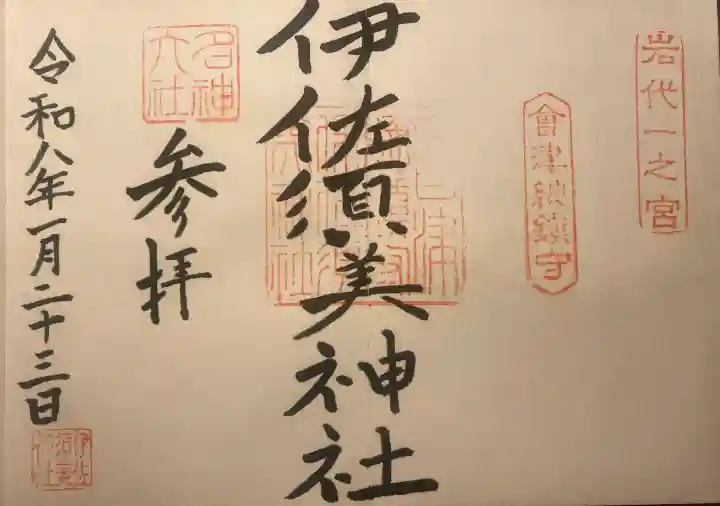 岩代一之宮
會津総鎮守
伊佐須美神社
名神
大社
参拝
令和八年一月二十三日